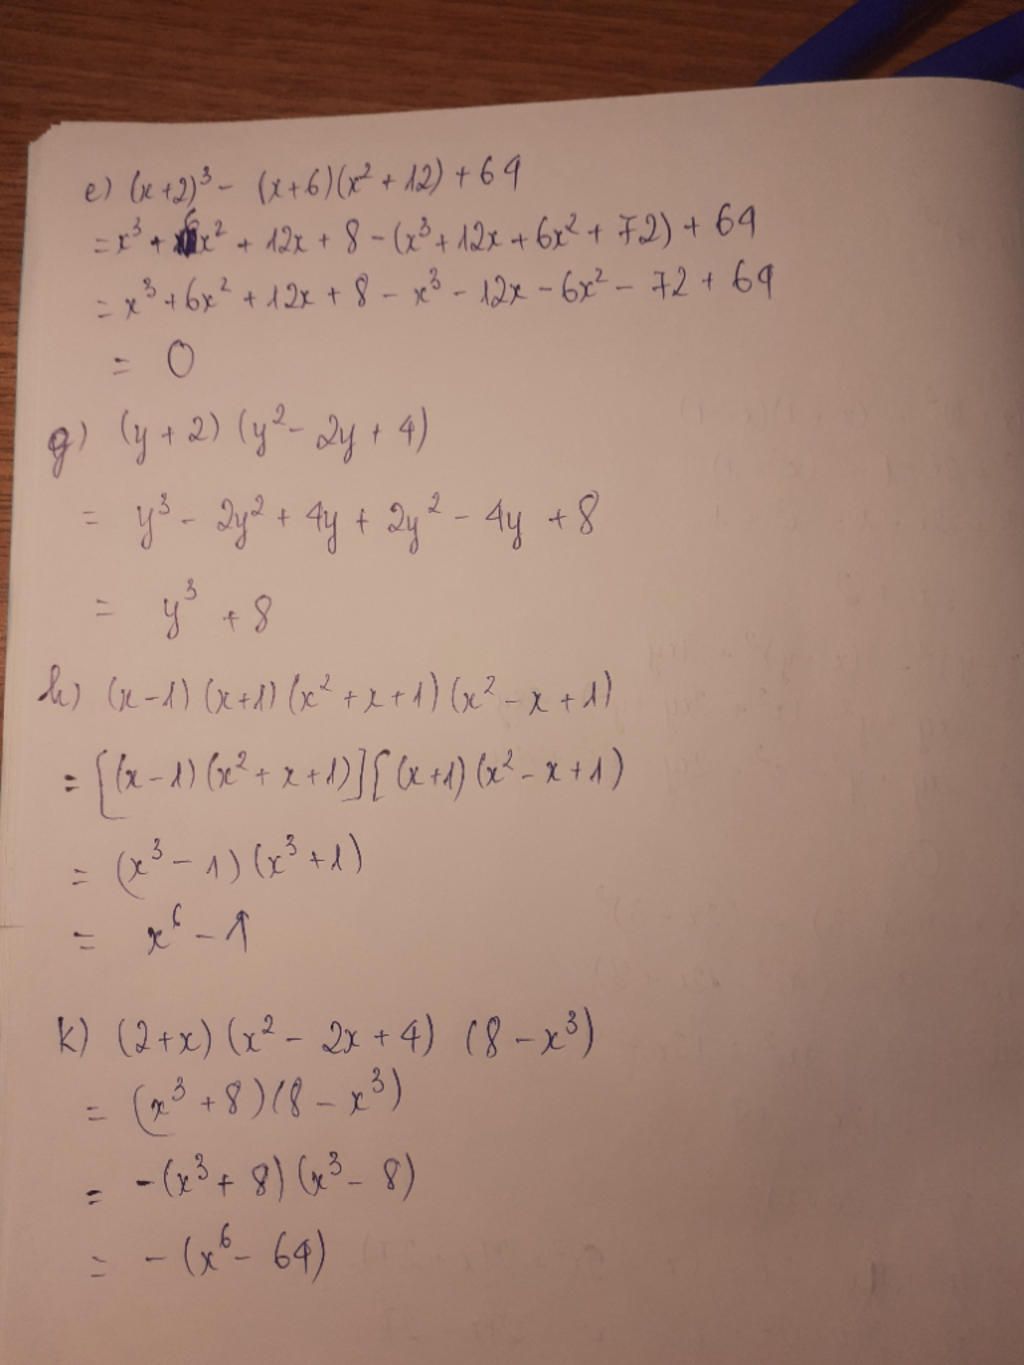 e) (x+2)³ - (x+6)(x² + 12) + 64
= x³ + 6x² + 12x + 8 - (x³ + 12x + 6x² + 72) + 64
= x³ + 6x² + 12x + 8 - x³ - 12x - 6x² - 72 + 64
= 0
g) (y + 2) (y² - 2y + 4)
= y³ - 2y² + 4y + 2y² - 4y + 8
= y³ + 8
h) (x-1) (x+1) (x² + x + 1) (x² - x + 1)
= [(x-1) (x² + x + 1)] [(x+1) (x² - x + 1)
= (x³ - 1) (x³ + 1)
= x⁶ - 1
k) (2+x) (x² - 2x + 4) (8 - x³)
= (x³ + 8) (8 - x³)
= -(x³ + 8) (x³ - 8)
= - (x⁶ - 64)